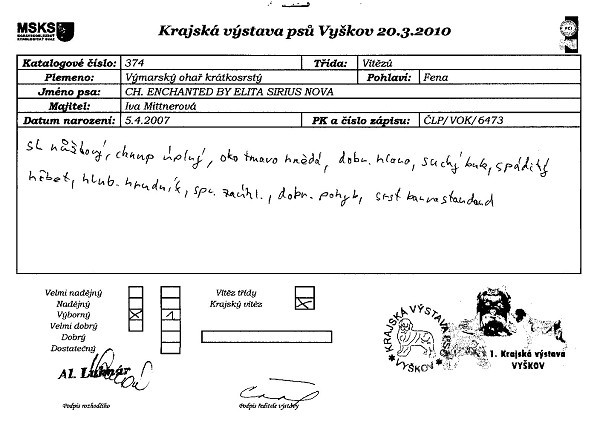 MSKS
Krajská výstava psů Vyškov 20.3.2010
FCI
Katalogové číslo: 374 Třída: Vítězů
Plemeno: Výmarský ohař krátkosrstý Pohlaví: Fena
Jméno psa: CH. ENCHANTED BY ELITA SIRIUS NOVA
Majitel: Iva Mittnerová
Datum narození: 5.4.2007 PK a číslo zápisu: ČLP/VOK/6473
sk nůžkový, chrup úplný, oko tmavo hnědé, dobr. hlava, suchý krk, spáditý
hřbet, hlub. hrudník, spr. zaúhl., dobr. pohyb, srst barva standard
Velmi nadějný
Nadějný
Výborný X 1
Velmi dobrý
Dobrý
Dostatečný
Vítěz třídy
Krajský vítěz X
KRAJSKÁ VÝSTAVA PSŮ
VYŠKOV
1. Krajská výstava
VYŠKOV
Podpis rozhodčího
Podpis ředitele výstavy